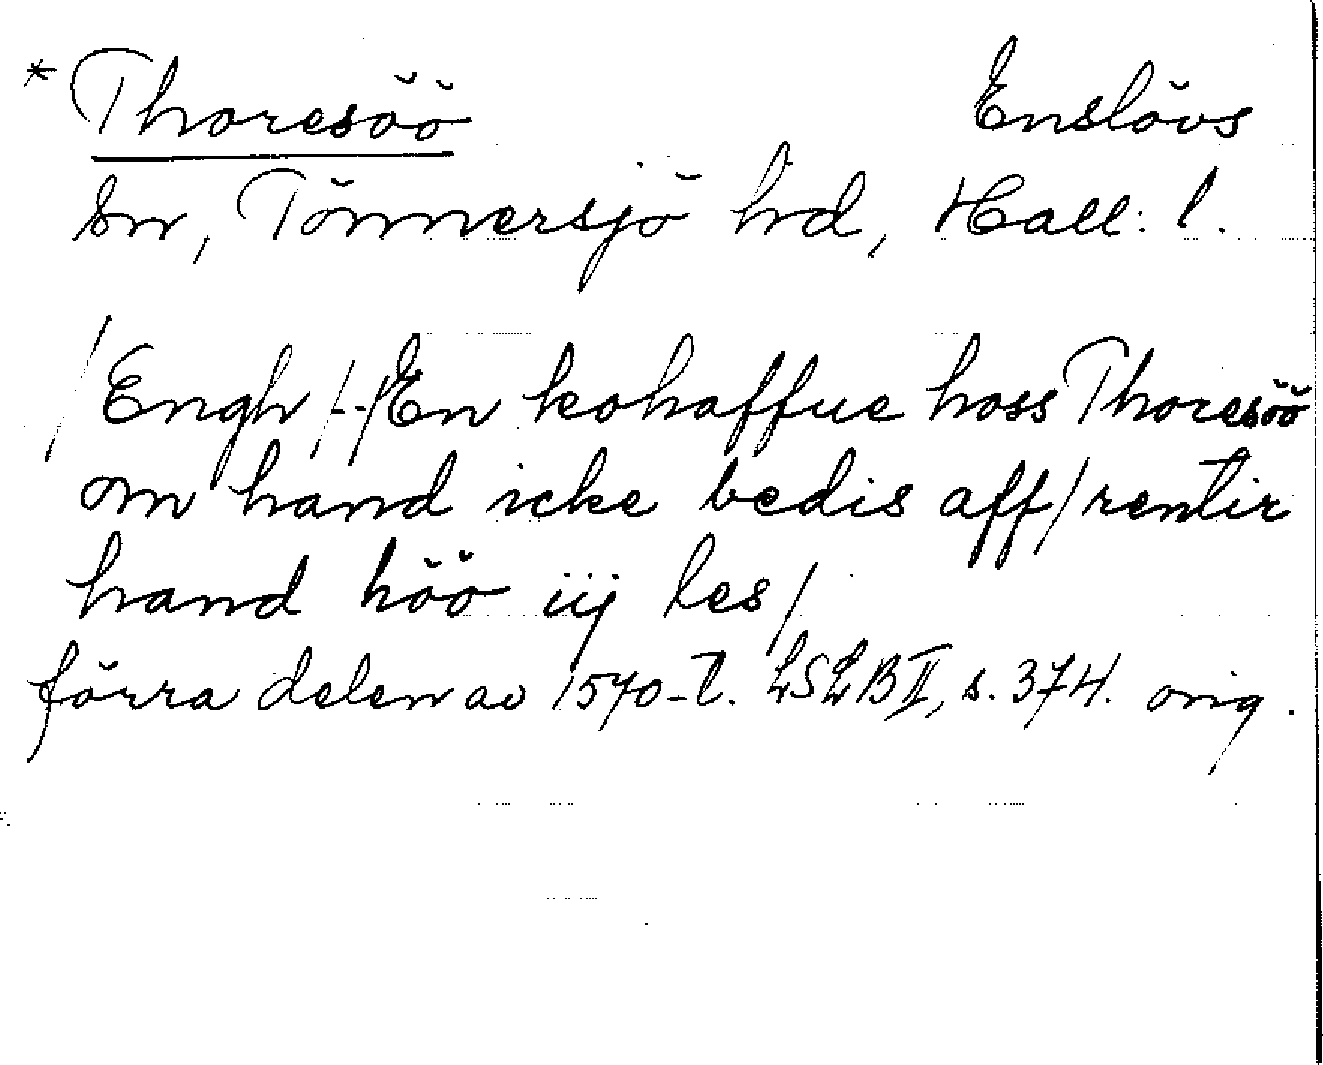 * Thoresöö Enslövs
sn, Tönnersjö hd, Hall: l.
/Engh/--/En kohaffue hoss Thoresöö
om hand icke bedis aff/rentir
hand höö iij les/
förra delen av 1570-t. LSLB II, s. 374. orig.